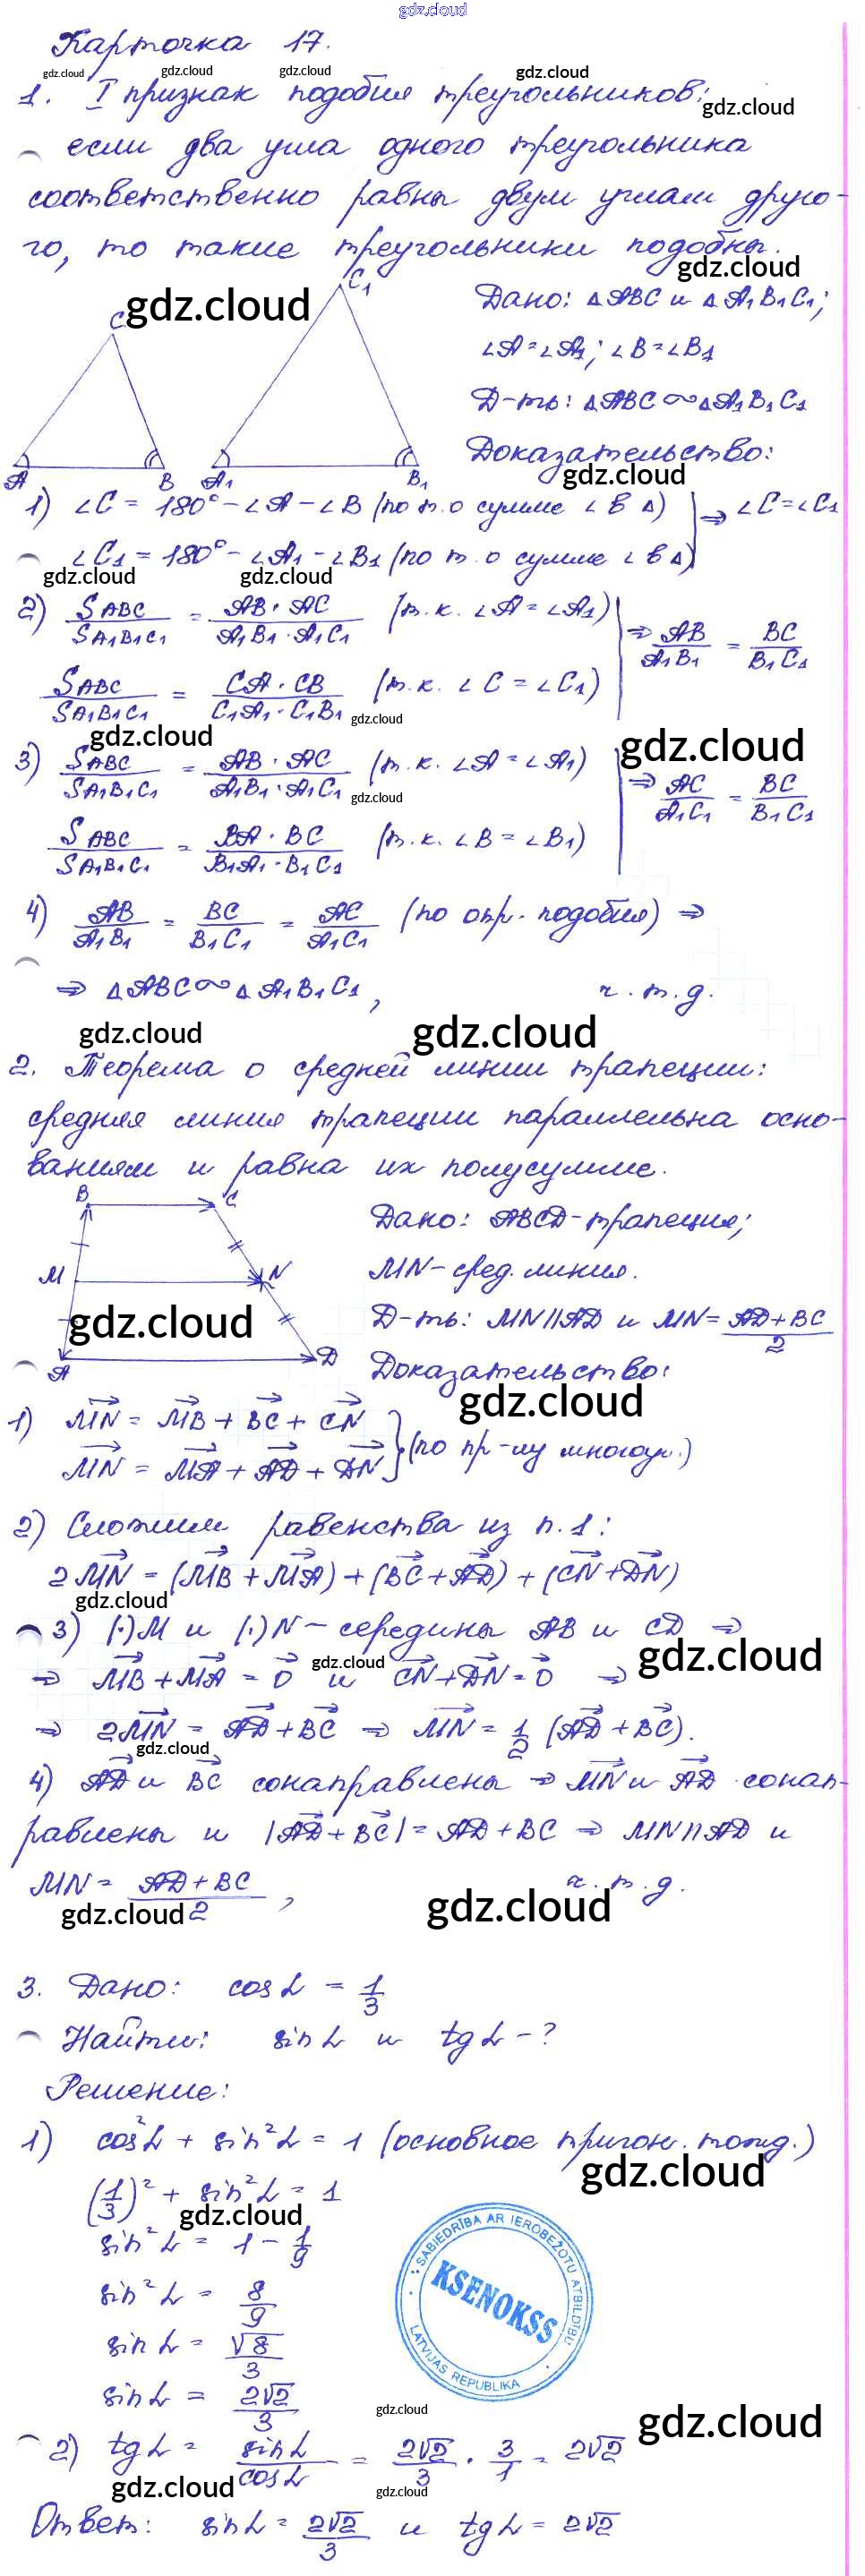 gdz.cloud
Карточка 17.
gdz.cloud gdz.cloud gdz.cloud gdz.cloud
1. I признак подобия треугольников:
gdz.cloud
если два угла одного треугольника
соответственно равны двум углам друго-
го, то такие треугольники подобны.
gdz.cloud
C gdz.cloud C₁ Дано: △ABC и △A₁B₁C₁;
∠A=∠A₁; ∠B=∠B₁
Д-ть: △ABC∾△A₁B₁C₁
Доказательство:
A B A₁ B₁ gdz.cloud
1) ∠C = 180° - ∠A - ∠B (по т. о сумме ∠ в △) ⇒ ∠C=∠C₁
∠C₁ = 180° - ∠A₁ - ∠B₁ (по т. о сумме ∠ в △)
gdz.cloud gdz.cloud
2) SABC/SA₁B₁C₁ = AB · AC/A₁B₁ · A₁C₁ (т.к. ∠A = ∠A₁) ⇒ AB/A₁B₁ = BC/B₁C₁
SABC/SA₁B₁C₁ = CA · CB/C₁A₁ · C₁B₁ (т.к. ∠C = ∠C₁)
gdz.cloud gdz.cloud gdz.cloud
3) SABC/SA₁B₁C₁ = AB · AC/A₁B₁ · A₁C₁ (т.к. ∠A = ∠A₁) ⇒ AC/A₁C₁ = BC/B₁C₁
gdz.cloud
SABC/SA₁B₁C₁ = BA · BC/B₁A₁ · B₁C₁ (т.к. ∠B = ∠B₁)
4) AB/A₁B₁ = BC/B₁C₁ = AC/A₁C₁ (по опр. подобия) ⇒
⇒ △ABC∾△A₁B₁C₁, ч.т.д.
gdz.cloud gdz.cloud
2. Теорема о средней линии трапеции:
средняя линия трапеции параллельна осно-
ваниям и равна их полусумме.
B C Дано: ABCD-трапеция;
M N MN-сред. линия.
gdz.cloud Д-ть: MN∥AD и MN=AD+BC/2
A D Доказательство:
gdz.cloud
1) MN = MB + BC + CN
MN = MA + AD + DN } (по пр-лу многоуг.)
2) Сложим равенства из п.1:
2MN = (MB + MA) + (BC + AD) + (CN + DN)
gdz.cloud
3) (·)M и (·)N - середины AB и CD ⇒
gdz.cloud gdz.cloud
⇒ MB + MA = 0 и CN + DN = 0 ⇒
⇒ 2MN = AD + BC ⇒ MN = 1/2 (AD + BC).
gdz.cloud
4) AD и BC сонаправлены ⇒ MN и AD сонап-
равлены и |AD + BC| = AD + BC ⇒ MN∥AD и
MN = AD + BC/2, ч.т.д.
gdz.cloud gdz.cloud
3. Дано: cos α = 1/3
Найти: sin α и tg α - ?
Решение:
1) cos²α + sin²α = 1 (основное тригон. тожд.)
gdz.cloud
(1/3)² + sin²α = 1
gdz.cloud
sin²α = 1 - 1/9
sin²α = 8/9
sin α = √8/3
sin α = 2√2/3
SABIEDRĪBA AR IEROBEŽOTU ATBILDĪBU
KSENOKSS
LATVIJAS REPUBLIKA
gdz.cloud gdz.cloud
2) tg α = sin α/cos α = 2√2/3 · 3/1 = 2√2
gdz.cloud gdz.cloud
Ответ: sin α = 2√2/3 и tg α = 2√2